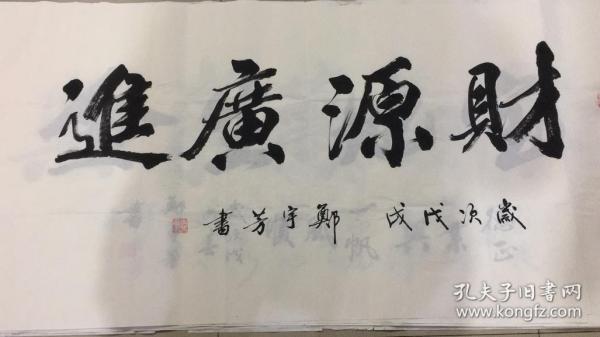 財源廣進
歲次戊戌 鄭宇芳書
孔夫子旧书网
www.kongfz.com